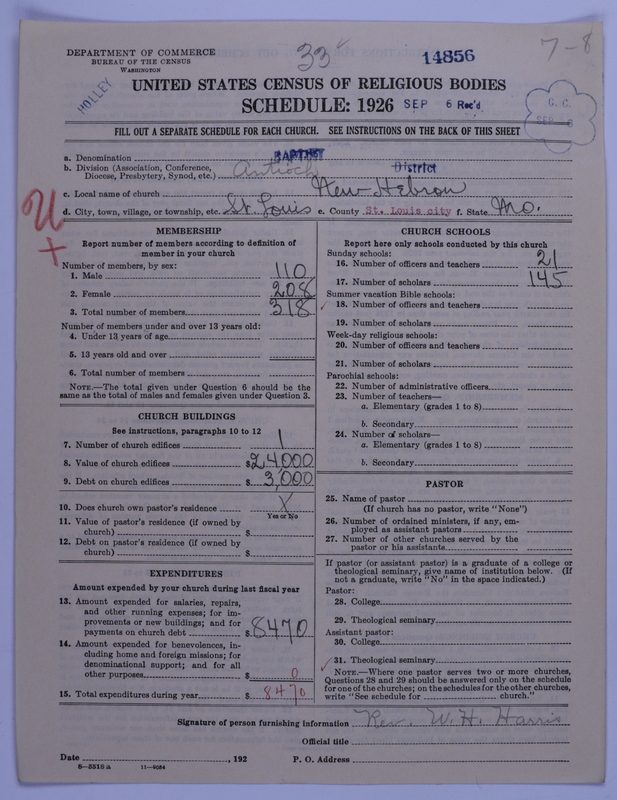 DEPARTMENT OF COMMERCE
BUREAU OF THE CENSUS
WASHINGTON
33
14856
7-8
HOLLEY
UNITED STATES CENSUS OF RELIGIOUS BODIES
SCHEDULE: 1926
SEP 6 Rec'd
C. C.
SEP
FILL OUT A SEPARATE SCHEDULE FOR EACH CHURCH. SEE INSTRUCTIONS ON THE BACK OF THIS SHEET
a. Denomination BAPTIST
b. Division (Association, Conference, Diocese, Presbytery, Synod, etc.) Antioch District
c. Local name of church New Hebron
d. City, town, village, or township, etc. St. Louis e. County St. Louis city f. State Mo.
MEMBERSHIP
Report number of members according to definition of
member in your church
Number of members, by sex:
1. Male 110
2. Female 208
3. Total number of members 318
Number of members under and over 13 years old:
4. Under 13 years of age
5. 13 years old and over
6. Total number of members
NOTE.—The total given under Question 6 should be the
same as the total of males and females given under Question 3.
CHURCH BUILDINGS
See instructions, paragraphs 10 to 12
7. Number of church edifices 1
8. Value of church edifices $24,000
9. Debt on church edifices $3,000
10. Does church own pastor's residence X
Yes or No
11. Value of pastor's residence (if owned by
church) $
12. Debt on pastor's residence (if owned by
church) $
EXPENDITURES
Amount expended by your church during last fiscal year
13. Amount expended for salaries, repairs,
and other running expenses; for im-
provements or new buildings; and for
payments on church debt $8470
14. Amount expended for benevolences, in-
cluding home and foreign missions; for
denominational support; and for all
other purposes $ 0
15. Total expenditures during year $ 8470
CHURCH SCHOOLS
Report here only schools conducted by this church
Sunday schools:
16. Number of officers and teachers 21
17. Number of scholars 145
Summer vacation Bible schools:
18. Number of officers and teachers
19. Number of scholars
Week-day religious schools:
20. Number of officers and teachers
21. Number of scholars
Parochial schools:
22. Number of administrative officers
23. Number of teachers—
a. Elementary (grades 1 to 8)
b. Secondary
24. Number of scholars—
a. Elementary (grades 1 to 8)
b. Secondary
PASTOR
25. Name of pastor
(If church has no pastor, write "None")
26. Number of ordained ministers, if any, em-
ployed as assistant pastors
27. Number of other churches served by the
pastor or his assistants
If pastor (or assistant pastor) is a graduate of a college or
theological seminary, give name of institution below. (If
not a graduate, write "No" in the space indicated.)
Pastor:
28. College
29. Theological seminary
Assistant pastor:
30. College
31. Theological seminary
NOTE.—Where one pastor serves two or more churches,
Questions 28 and 29 should be answered only on the schedule
for one of the churches; on the schedules for the other churches,
write "See schedule for church."
Signature of person furnishing information Rev. W. H. Harris
Official title
Date , 192 P. O. Address
8—5318 a 11—9084